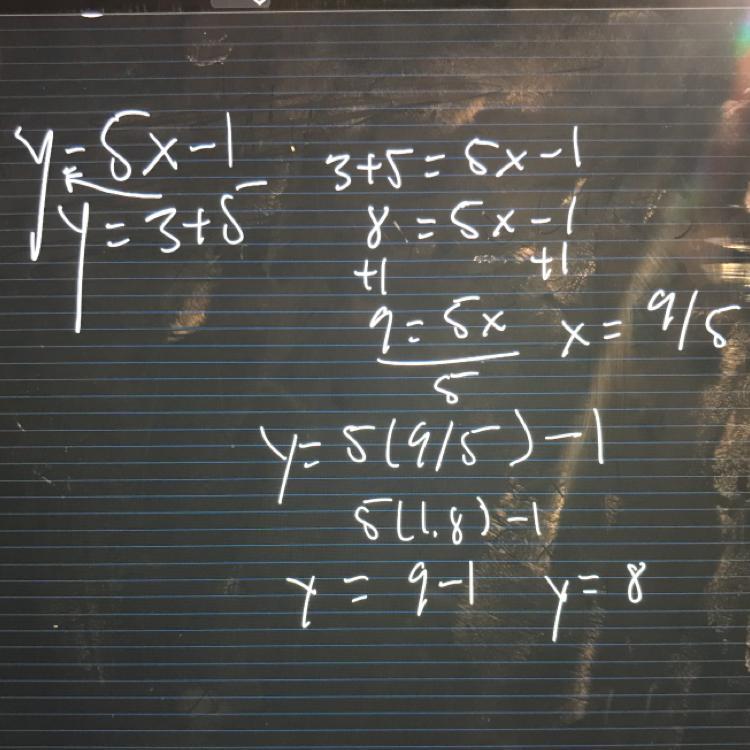 y=5x-1
y=3+5
3+5=5x-1
8=5x-1
+1 +1
9=5x x=9/5
5
y=5(9/5)-1
5(1.8)-1
y=9-1 y=8